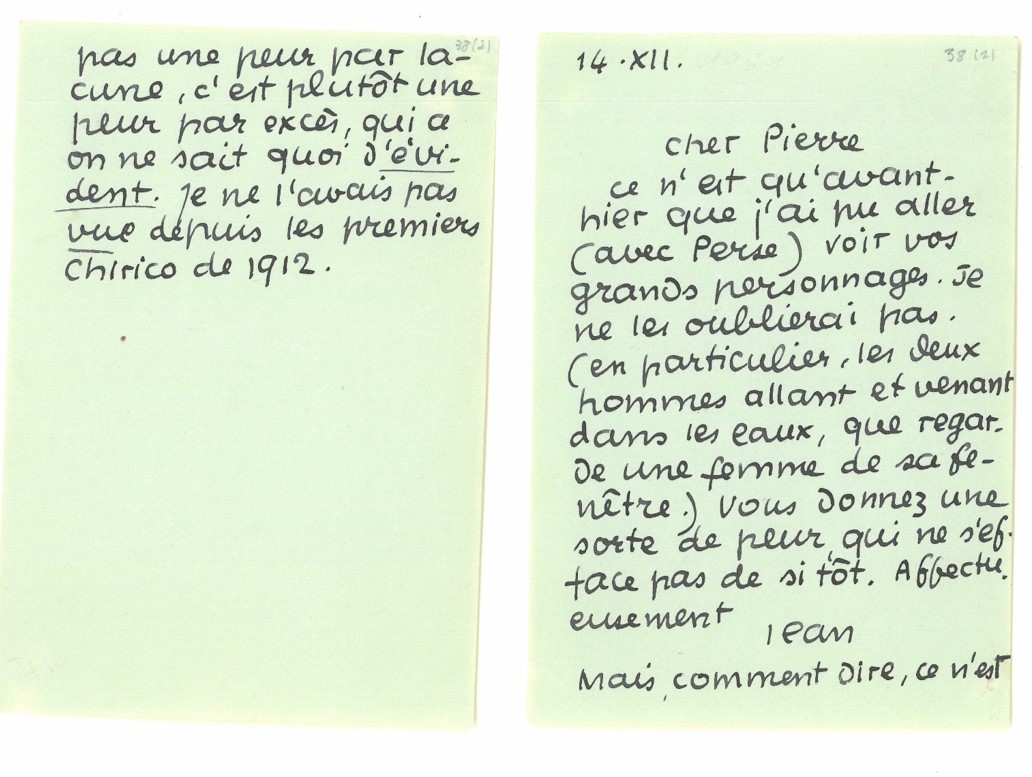 38 (2)
14.XII.
cher Pierre
ce n'est qu'avant-
hier que j'ai pu aller
(avec Perse) voir vos
grands personnages. Je
ne les oublierai pas.
(en particulier, les deux
hommes allant et venant
dans les eaux, que regar-
de une femme de sa fe-
nêtre.) Vous donnez une
sorte de peur, qui ne s'ef-
face pas de si tôt. Affectu-
eusement
Jean
Mais, comment dire, ce n'est
38 (2)
pas une peur par la-
cune, c'est plutôt une
peur par excès, qui a
on ne sait quoi d'évi-
dent. Je ne l'avais pas
vue depuis les premiers
Chirico de 1912.